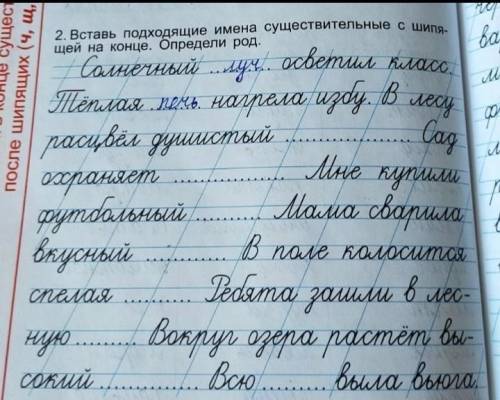 2. Вставь подходящие имена существительные с шипя-
щей на конце. Определи род.
Солнечный ..луч.. осветил класс.
Тёплая .печь. нагрела избу. В лесу
расцвёл душистый .............. Сад
охраняет .............. Мне купили
футбольный .......... Мама сварила
вкусный ............ В поле колосится
спелая .......... Ребята зашли в лес-
ную ......... Вокруг озера растёт вы-
сокий ............ Всю ...... выла вьюга.
после шипящих (ч, щ,
в конце сущест